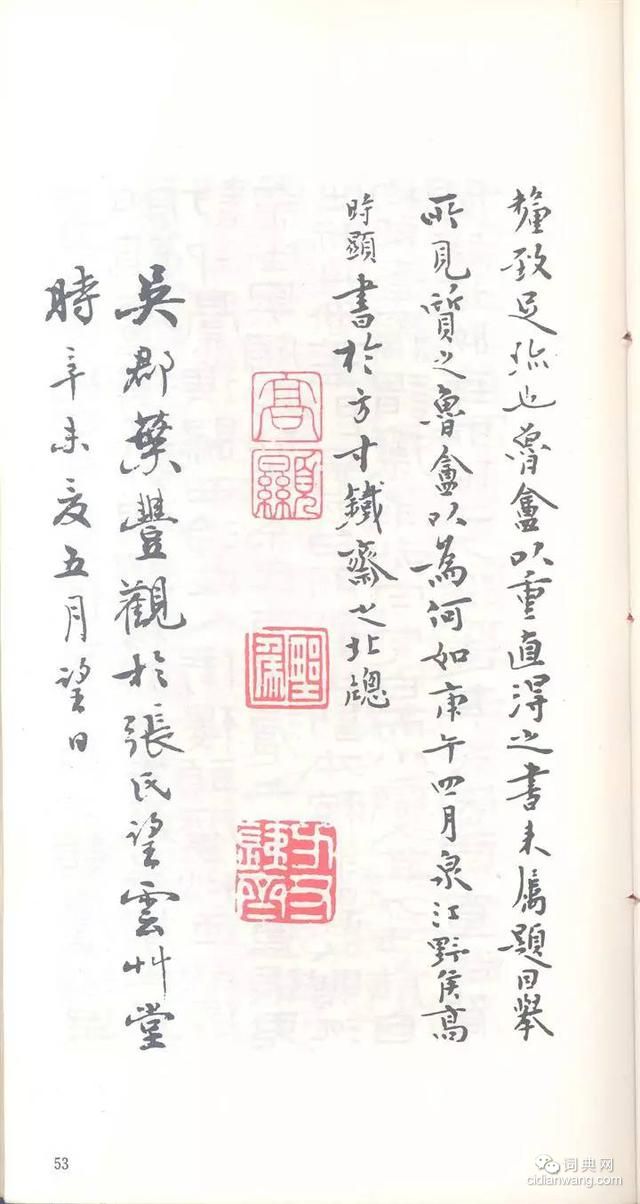 致足珍也魯盦以重直得之書来屬題因舉
所見質之魯盦以為何如庚午四月泉江野侯高
時顯書於方寸鐵齋之北牕
高顯
吳郡葉豐觀於張氏望雲艸堂
時辛未夏五月望日
53
词典网
cidianwang.com